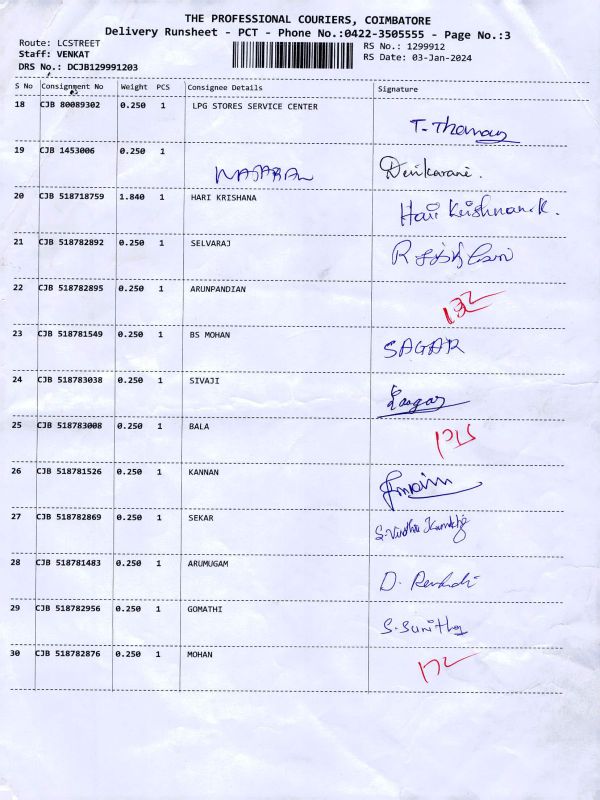 THE PROFESSIONAL COURIERS, COIMBATORE
Delivery Runsheet - PCT - Phone No.:0422-3505555 - Page No.:3
Route: LCSTREET
Staff: VENKAT
DRS No.: DCJB129991203
RS No.: 1299912
RS Date: 03-Jan-2024
S No Consignment No Weight PCS Consignee Details Signature
18 CJB 80089302 0.250 1 LPG STORES SERVICE CENTER
T. Thomas
19 CJB 1453006 0.250 1
Devikarani.
20 CJB 518718759 1.840 1 HARI KRISHANA Hari Krishnan.K.
21 CJB 518782892 0.250 1 SELVARAJ
22 CJB 518782895 0.250 1 ARUNPANDIAN
23 CJB 518781549 0.250 1 BS MOHAN SAGAR
24 CJB 518783038 0.250 1 SIVAJI
25 CJB 518783008 0.250 1 BALA
26 CJB 518781526 0.250 1 KANNAN
27 CJB 518782869 0.250 1 SEKAR
28 CJB 518781483 0.250 1 ARUMUGAM
29 CJB 518782956 0.250 1 GOMATHI S. Sunitha
30 CJB 518782876 0.250 1 MOHAN